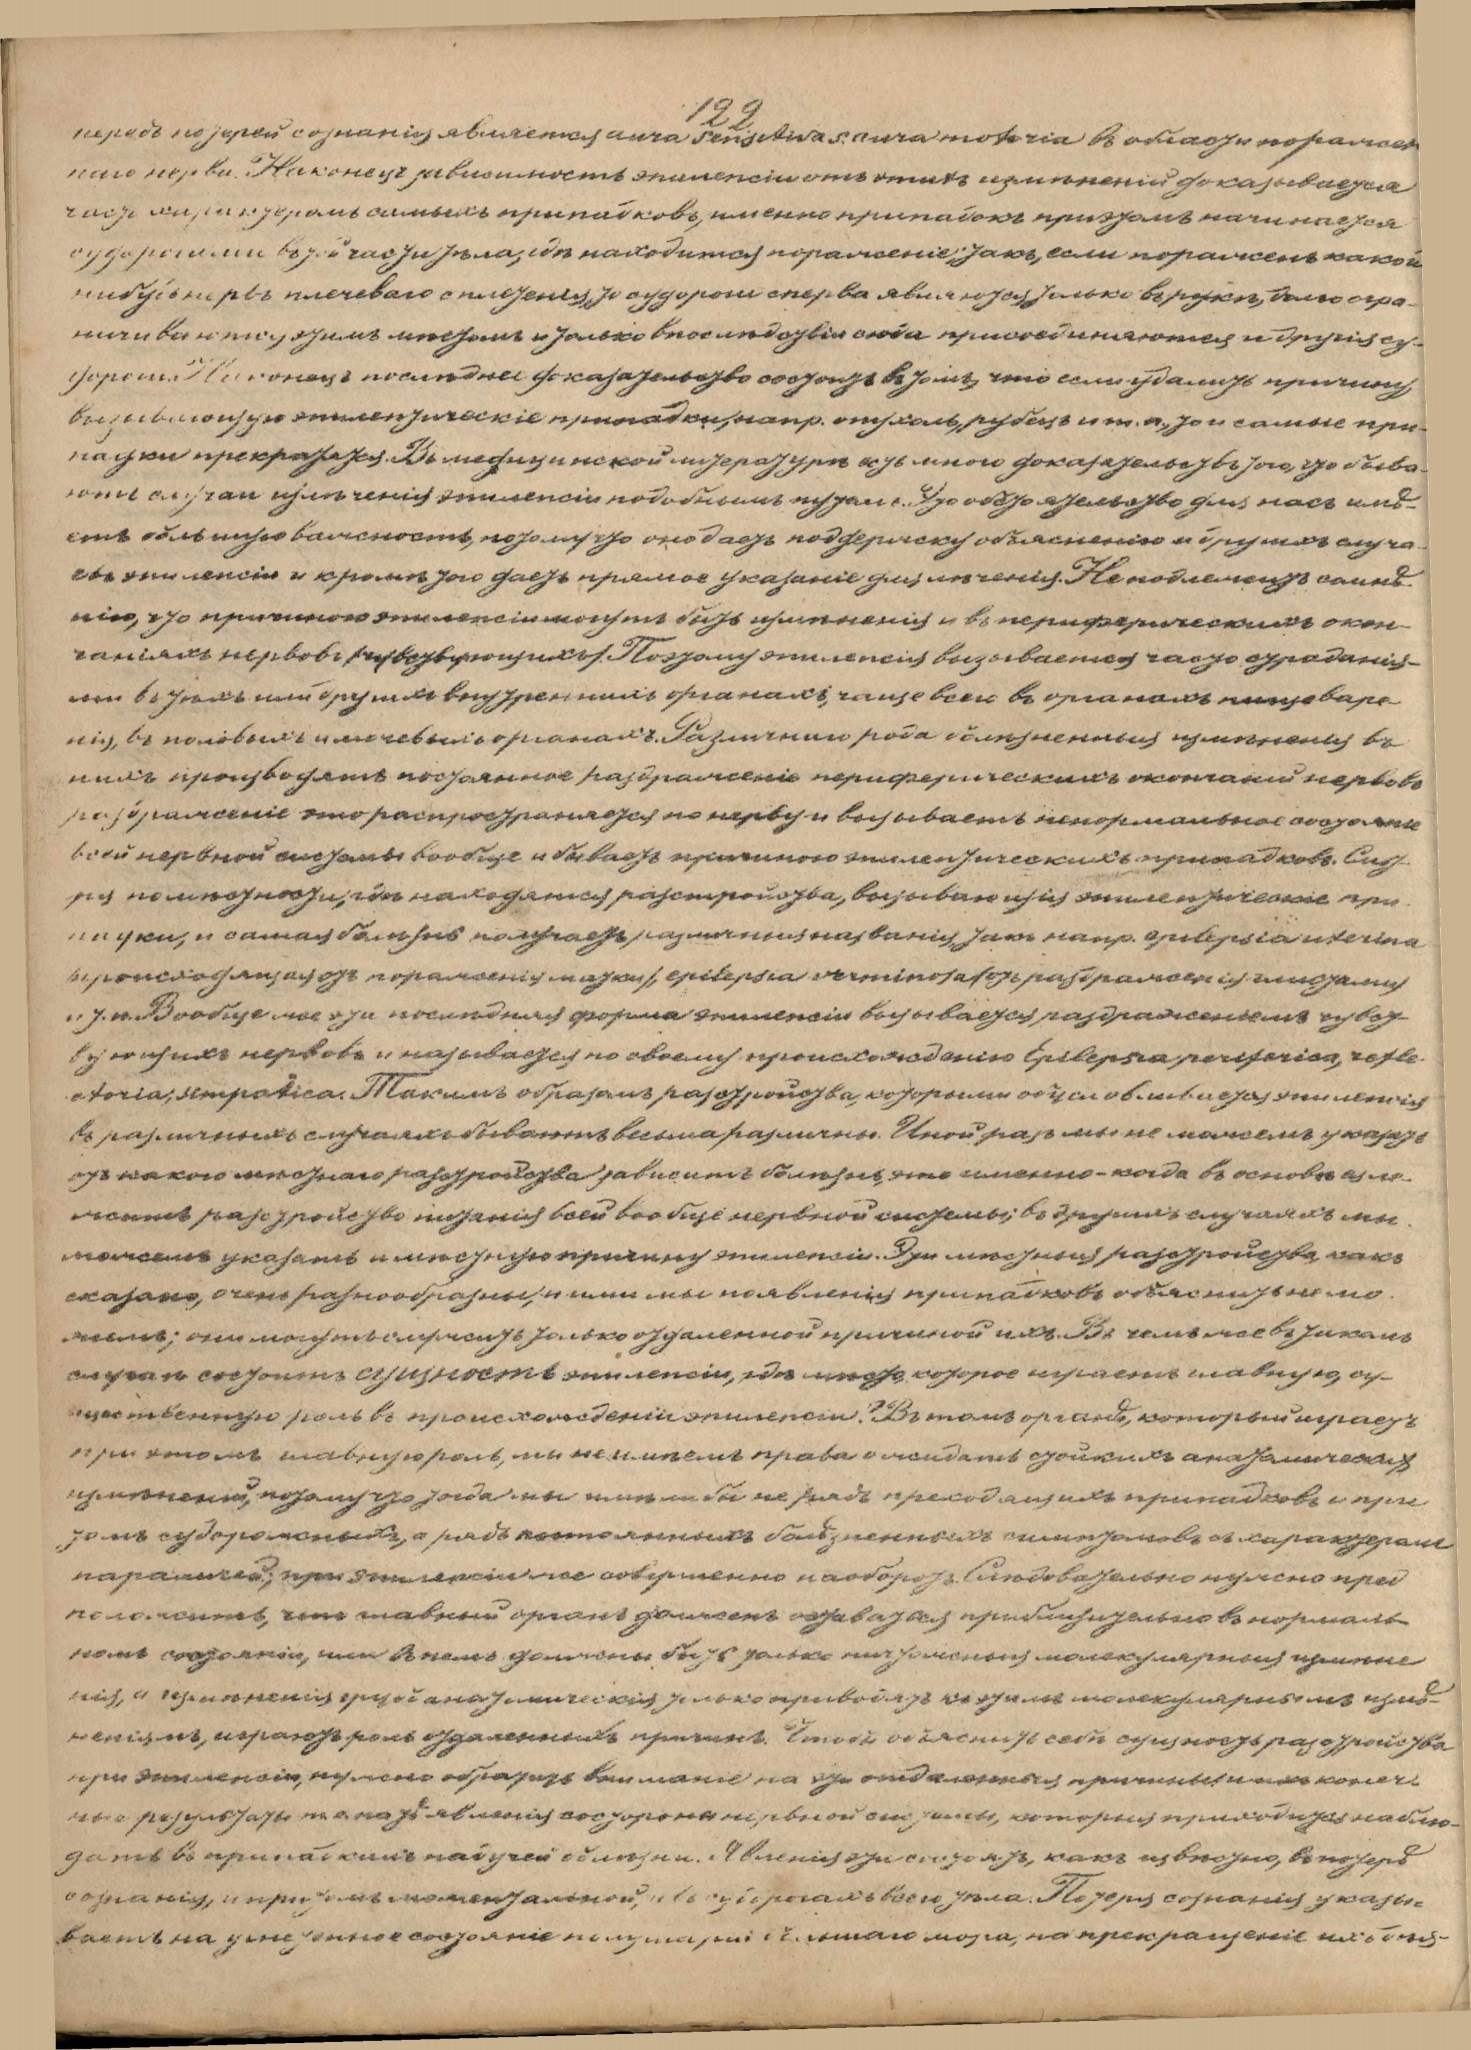 122
передъ потерей сознанія является aura sensitiva s. aura motoria въ области поражен
наго нерва. Наконецъ зависимость эпилепсіи отъ этихъ измѣненій доказывается
часто характеромъ самыхъ припадковъ, именно припадокъ при этомъ начинается
судорогами въ той части тѣла, гдѣ находится пораженіе; такъ, если пораженъ какой
нибудь нервъ плечеваго сплетенія, то судороги сперва являются только въ рукѣ, долго огра-
ничиваются этимъ мѣстомъ и только впослѣдствіи сюда присоединяются и другія су-
дороги. Наконецъ послѣднее доказательство состоитъ въ томъ, что если удалить причину,
вызывающую эпилептическіе припадки, напр. опухоль, рубецъ и т. п., то и самые при-
падки прекратятся. Въ медицинской литературѣ есть много доказательствъ того, что быва-
ютъ случаи излѣченія эпилепсіи подобнымъ путемъ. Это обстоятельство для насъ имѣ-
етъ большую важность, потому что оно даетъ поддержку объясненію и другихъ случа-
евъ эпилепсіи и кромѣ того даетъ прямое указаніе для лѣченія. Не подлежитъ сомнѣ-
нію, что причиною эпилепсіи могутъ быть измѣненія и въ периферическихъ окон-
чаніяхъ нервовъ (чувствующихъ). Поэтому эпилепсія вызывается часто страданія-
ми въ тѣхъ или другихъ внутреннихъ органахъ, чаще всего въ органахъ пищеваре-
нія, въ половыхъ и мочевыхъ органахъ. Различнаго рода болѣзненныя измѣненія въ
нихъ производятъ постоянное раздраженіе периферическихъ окончаній нервовъ
раздраженіе это распространяется по нерву и вызываетъ ненормальное состояніе
всей нервной системы вообще и бываетъ причиною эпилептическихъ припадковъ. Смот-
ря по мѣстности, гдѣ находятся разстройства, вызывающія эпилептическіе при-
падки, и самая болѣзнь получаетъ различныя названія, такъ напр. epilepsia uterina
(происходящая отъ пораженія матки), epilepsia verminosa (отъ раздраженія глистами)
и т. п. Вообще же эта послѣдняя форма эпилепсіи вызывается раздраженіемъ чувст-
вующихъ нервовъ и называется по своему происхожденію Epilepsia periferica, refle-
ctoria, simpatica. Такимъ образомъ разстройства, которыми обусловливается эпилепсія
въ различныхъ случаяхъ бываютъ весьма различны. Иной разъ мы не можемъ указать
отъ какого мѣстнаго разстройства зависитъ болѣзнь, это именно – когда въ основѣ ея ле-
житъ разстройство питанія всей вообще нервной системы; въ другихъ случаяхъ мы
можемъ указать и мѣстную причину эпилепсіи. Эти мѣстныя разстройства, какъ
сказано, очень разнообразны, и ими мы появленія припадковъ объяснить не мо-
жемъ; они могутъ служить только отдаленной причиной ихъ. Въ чемъ же въ такомъ
случаѣ состоитъ сущность эпилепсіи, гдѣ мѣсто, которое играетъ главную, су-
щественную роль въ происхожденіи эпилепсіи? Въ томъ органѣ, который играетъ
при этомъ главную роль, мы не имѣемъ права ожидать стойкихъ анатомическихъ
измѣненій, потому что тогда мы имѣли бы не рядъ преходящихъ припадковъ и при
томъ судорожныхъ, а рядъ постоянныхъ болѣзненныхъ симптомовъ съ характеромъ
параличей; при эпилепсіи же совершенно наоборотъ. Слѣдовательно нужно пред
положить, что главный органъ долженъ оставаться приблизительно въ нормаль-
номъ состояніи, или въ немъ должны быть только ничтожныя молекулярныя измѣне
нія, а измѣненія грубо анатомическія только приводятъ къ этимъ молекулярнымъ измѣ-
неніямъ, играютъ роль отдаленныхъ причинъ. Чтобъ объяснить себѣ сущность разстройства
при эпилепсіи, нужно обратить вниманіе на эти отдаленныя причины и ихъ конеч-
ные результаты явленія со стороны нервной системы, которыя приходится наблю-
дать въ припадкахъ падучей болѣзни. Явленія эти состоятъ, какъ извѣстно, въ потерѣ
сознанія, и притомъ моментальной, и въ судорогахъ всего тѣла. Потеря сознанія указы-
ваетъ на угнетенное состояніе полушарій большаго мозга, на прекращеніе ихъ дѣя-